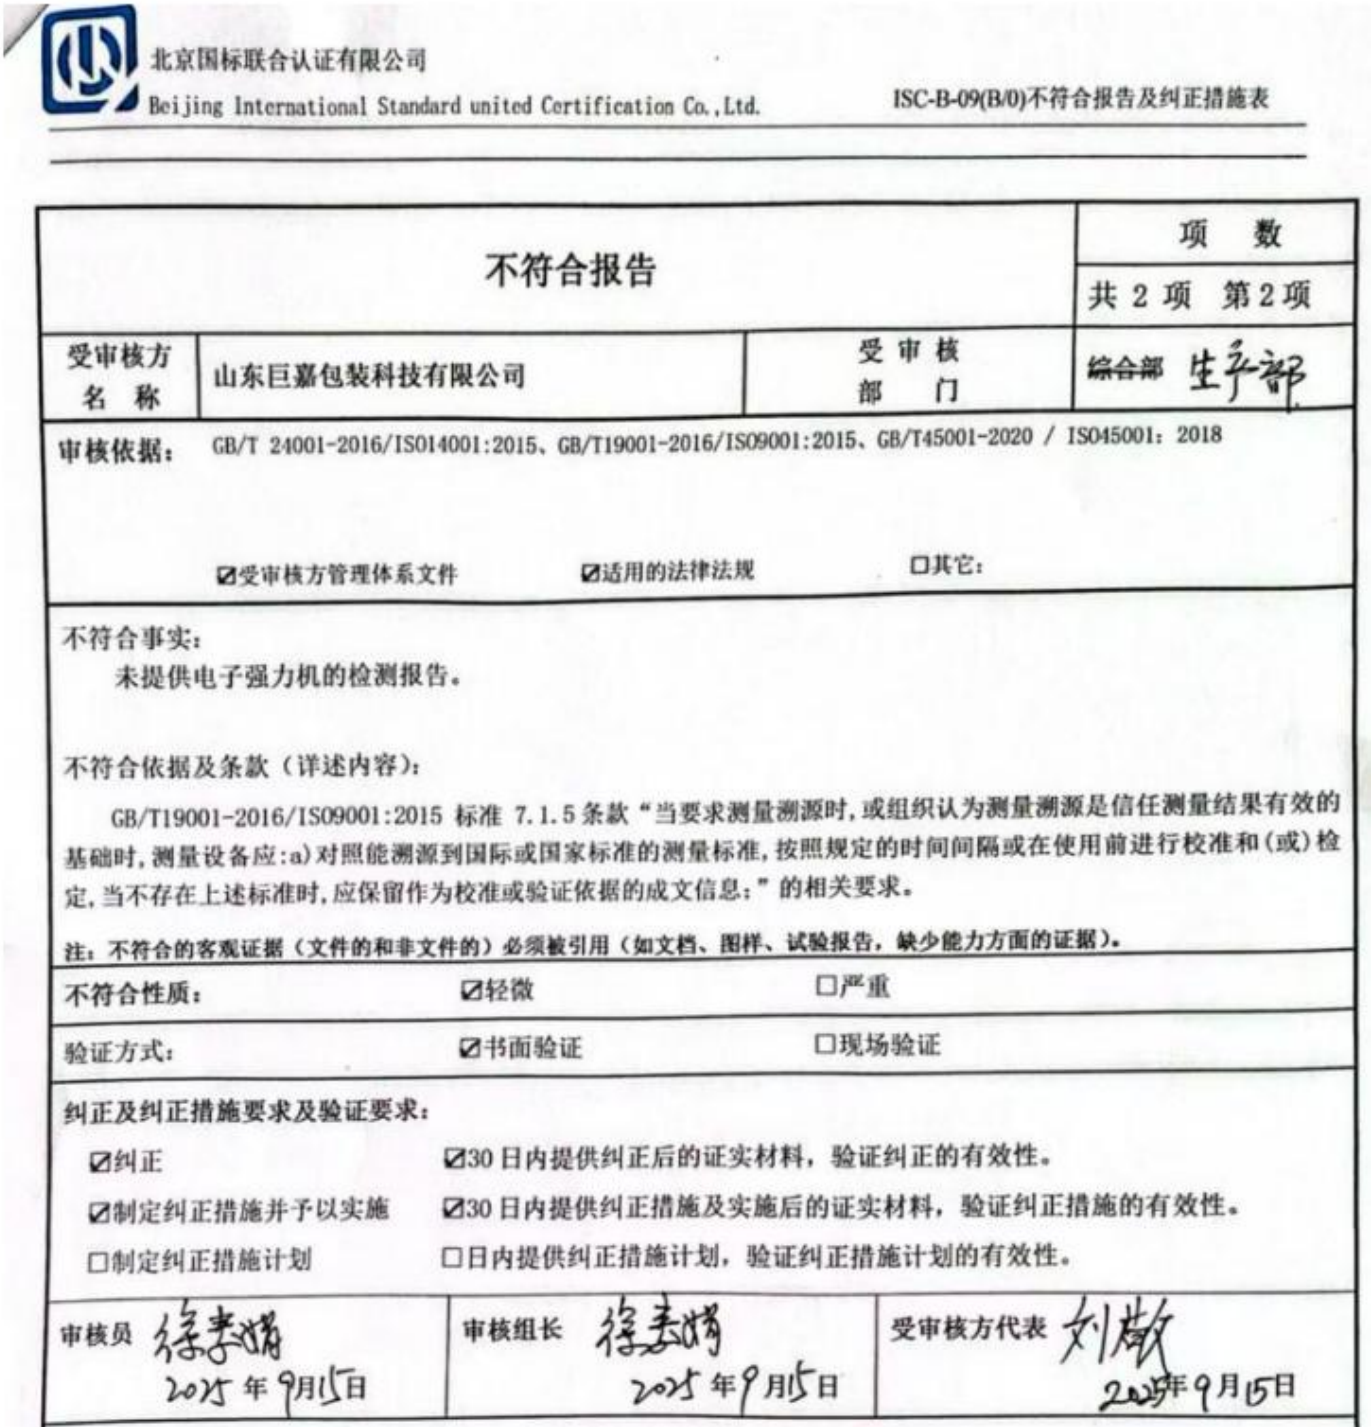 北京国标联合认证有限公司
Beijing International Standard united Certification Co.,Ltd.
ISC-B-09(B/0)不符合报告及纠正措施表
不符合报告
项 数
共 2 项 第2项
受审核方
名 称
山东巨嘉包装科技有限公司
受 审 核
部 门
综合部 生产部
审核依据：
GB/T 24001-2016/ISO14001:2015、GB/T19001-2016/ISO9001:2015、GB/T45001-2020 / ISO45001：2018
☑受审核方管理体系文件 ☑适用的法律法规 □其它：
不符合事实：
未提供电子强力机的检测报告。
不符合依据及条款（详述内容）：
GB/T19001-2016/ISO9001:2015 标准 7.1.5条款“当要求测量溯源时,或组织认为测量溯源是信任测量结果有效的
基础时,测量设备应:a)对照能溯源到国际或国家标准的测量标准,按照规定的时间间隔或在使用前进行校准和(或)检
定,当不存在上述标准时,应保留作为校准或验证依据的成文信息;”的相关要求。
注：不符合的客观证据（文件的和非文件的）必须被引用（如文档、图样、试验报告，缺少能力方面的证据）。
不符合性质： ☑轻微 □严重
验证方式： ☑书面验证 □现场验证
纠正及纠正措施要求及验证要求：
☑纠正 ☑30 日内提供纠正后的证实材料，验证纠正的有效性。
☑制定纠正措施并予以实施 ☑30 日内提供纠正措施及实施后的证实材料，验证纠正措施的有效性。
□制定纠正措施计划 □日内提供纠正措施计划，验证纠正措施计划的有效性。
审核员
2025 年 9月15日
审核组长
2025 年 9 月15日
受审核方代表 刘
2025年 9 月 15日